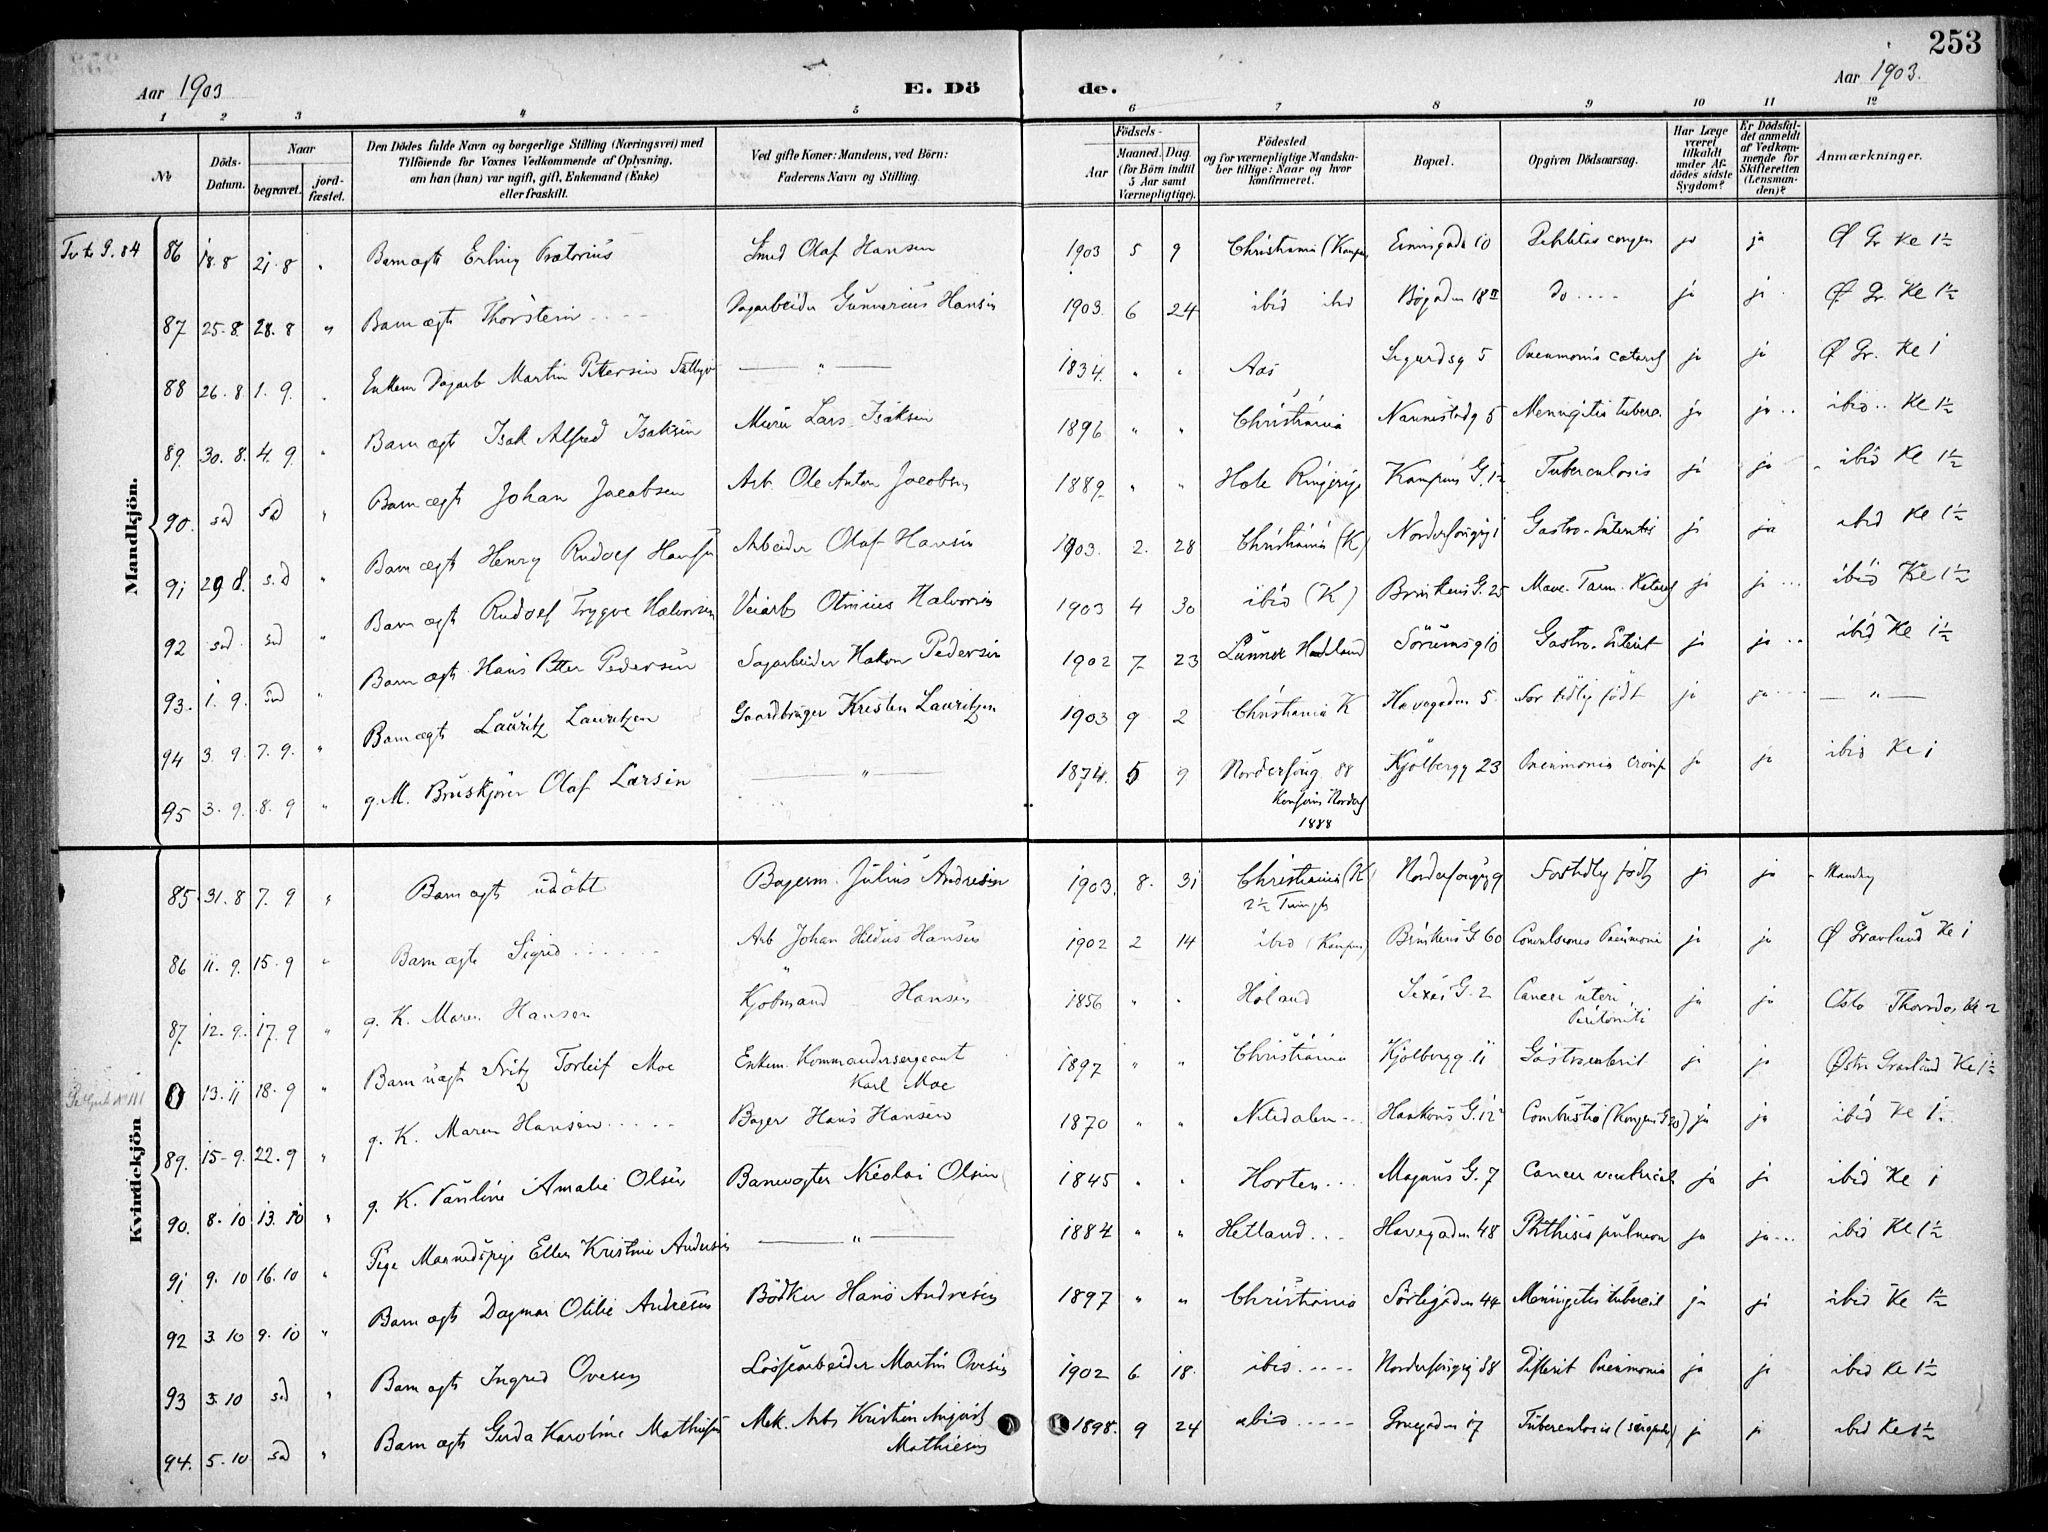 253
Aar 1903
E. Döde.
Aar 1903.
1 2 3 4 5 6 7 8 9 10 11 12
No
Döds-Datum.
Naar
begravet.
jord-fæstet.
Den Dödes fulde Navn og borgerlige Stilling (Næringsvei) med
Tilföiende for Voxnes Vedkommende af Oplysning,
om han (hun) var ugift, gift, Enkemand (Enke)
eller fraskilt.
Ved gifte Koner: Mandens, ved Börn:
Faderens Navn og Stilling.
Födsels-
Aar
Maaned.
Dag
(for Börn indtil
5 Aar samt
Værnepligtige).
Födested
og for værnepligtige Mandska-
ber tillige: Naar og hvor
konfirmeret.
Bopæl.
Opgiven Dödsaarsag.
Har Læge
været
tilkaldt
under Af-
dödes sidste
Sygdom?
Er Dödsfal-
det anmeldt
af Vedkom-
mende for
Skifteretten
(Lensman-
den)?
Anmærkninger.
Mandkjön.
86 18.8 21.8 " Barn ægte Erling Prætorius Smed Olaf Hansen 1903 5 9 Christiania (Kampen) 10 ja ja Ø Gr Ke 1½
87 25.8. 28.8 " Barn ægte Thorstein Dagarbeider Gunnerius Hansen 1903. 6 24 ibid ibid Bøgaden 18 II do .... ja ja Ø Gr. Ke 1½
88 26.8. 1.9. " Enkem Dagarb Martin Pettersen — " — 1834. " " Aas Sigurdsg 5 Pneumonia catarrh ja ja Ø Gr. Ke 1
89. 30.8. 4.9. " Barn ægte Isak Alfred Isaksen Murer Lars Isaksen 1896 " " Christiania Nannestadg 5 Meningitis tuberc. ja ja .. ibid .. Ke 1½
90. sd sd " Barn ægte Johan Jacobsen Arb. Ole Anton Jacobsen 1889 " " Hole Ringerige Kampens G. 12 Tuberculosis ja ja ibid Ke 1½
91 29 8. s.d " Barn ægte Henry Rudolf Hansen Arbeider Olaf Hansen 1903. 2. 28 Christiania (K) Gastro-Enteritis ja ja ibid Ke 1½
92 sd sd " Barn ægte Rudolf Trygve Halvorsen Veiarb Otinius Halvorsen 1903 4 30 ibid (K) Brinkens G. 25 Mave. Tarm. Katarrh ja ja ... ibid Ke 1½
93. 1.9. sd " Barn ægte Hans Petter Pedersen Sagarbeider Hakon Pedersen 1902 7 23 Lunner Hadeland Sörumsg 10 Gastro-Enterit ja ja .. ibid Ke 1½
94 3.9. 7.9. " Barn ægte Lauritz Lauritzen Gaardbruger Kristen Lauritzen 1903 9 2 Christiania K Havegaden 5 For tidlig födt ja ja — " —
95 3.9. 8.9 " g. M. Bruskjörer Olaf Larsen — " — 1874. 5 9 88 Kjölbergg 23 Pneumonia croup ja ja ibid Ke 1
1888
Kvindekjön
85. 31.8 7.9 " Barn ægte udöbt Bogerm. Julius Andresen 1903. 8. 31 Christiania (K) 9 For tidlig födt ja ja
86 11.9. 15.9 " Barn ægte Sigrid ...... Arb Johan Hansen 1902 2 14 ibid (Kampen) Brinkens G 60 Convulsiones Pneumoni ja ja Ø Gravlund Ke 1
87. 12.9. 17.9 " g. K. Maren Hansen Kjöbmand Hansen 1856 " " Höland G. 2 Cancer uteri, ja ja
Peritoniti
0 13.11 18.9 " Barn uægte Fritz Torleif Moe Enkem. Kommandersergeant 1897 " " Christiania Kjölbergg. 11 Gastroenterit ja ja Østre Gravlund Ke 1½
Karl Moe
89. 15.9. 22.9 " g. K. Maren Hansen ..... Bager Hans Hansen 1870 " " Nitedalen ... Haakons G. 12 Combustio (Kongens G 20) ja ja ibid Ke 1.
90. 8.10 13.10 " g. K. Pauline Amalie Olsen Banevogter Nicolai Olsen 1845 " " Horten ... Magnus G. 7 Cancer ventricul ja ja ibid Ke 1
91 9.10 16.10 " Pige Ellen Kristine Andersen — " — 1884 " " Hetland ... Havegaden 48 Phthisis pulmon ja ja ... ibid Ke 1½
92 3.10 9.10 " Barn ægte Dagmar Otilie Andresen Bödker Hans Andresen 1897 " " Christiania Sörligaden 44 Meningitis tubercul ja ja ibid Ke 1½
93 3.10 sd " Barn ægte Ingrid Ovesen Lossearbeider Martin Ovesen 1902 6 18. ibid ..... Difterit Pneumonia ja ja ibid Ke 1½
94. 5.10 sd " Barn ægte Gerda Karoline Mathisen Mek. Arb Kristen 1898. 9 24 ibid ..... 17 Tuberculosis ja ja ibid Ke 1½
Mathiesen